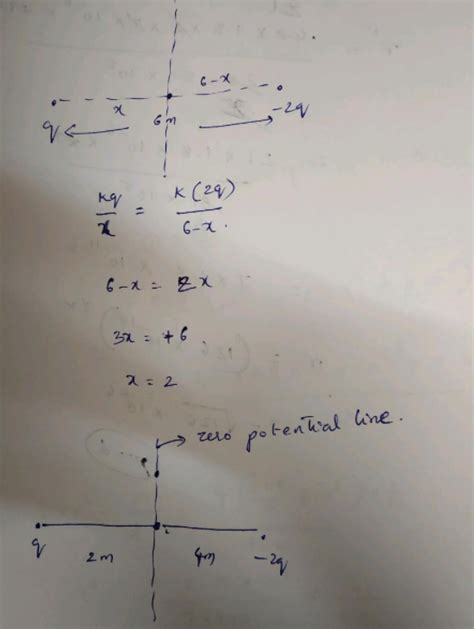 6-x
x
q 6m -2q
kq/x = k(2q)/6-x.
6-x = 2x
3x = +6
x = 2
→ zero potential line.
q 2m 4m -2q